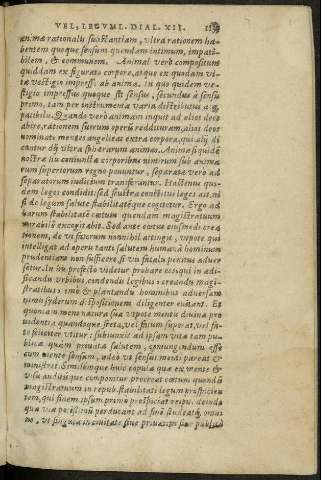 VEL, LEGVM. DIAL. XII.
anima rationalis substantiam, vltra rationem ha-
bentem quoque sensum quendam intimum, impati-
bilem, & communem. Animal verò compositum
quiddam ex figurato corpore, atque ex quodam vi-
tæ vestigio impresso ab anima. In quo quidem ve-
stigio impressus quoque sit sensus, secundus à sensu
primo, tam per instrumenta varia distributus
patibilis. Quando verò animam inquit ad alios deos
abire, rationem suorum operũ reddituram, alios deos
nominate mentes angelicas extra corpora, qui
vltra spherarum animas. Anima siquidẽ
nostræ hic coniunctæ corporibus nimirum sub anima
rum superiorum regno ponuntur, separatæ verò ad
separatorum iudicium transferuntur. Hactenus qui-
dem leges condidit: sed frustra conditis leges ait, ni
si de legum salute stabilitatéque cogitetur. Ergo ad
harum stabilitatem cœtum quendam magistratuum
excogitabit. Sed ante cœtus eiusmodi crea
tionem, de vi syderum nonnihil attingit, vtpote qui
intelligat ad opera tanti salutem humanã hominum
prudentiam non sufficere, si vis fatalis penitus aduer
setur. In his profectò videtur probare eos qui in ædi-
ficandis vrbibus, condendis legibus, creandis magi-
stratibus, imò & plantandis hominibus aduersam
syderum dispositionem diligenter euitant. Et
quoniam mens natura sua vtpote mentis diuinæ pro
uidentia quandoque freta, vel fatum superat, vel fa-
to feliciter vtitur: subiunxit ad ipsam vitæ tam pu-
blicæ quàm priuatæ salutem, coniungendum esse
cum mente sensum, adeò vt sensus menti pareat &
ministret. Similemque huic copulæ quæ ex mente &
sensu auditúque componitur procreat cœtum quendã
magistratuum in repub. stabilitati legum proficien-
tem, qui finem ipsum primò prospiciat reipu. deinde
qua via potissimũ perducant ad finẽ
vt singula in ciuitate siue priuatim siue publicè